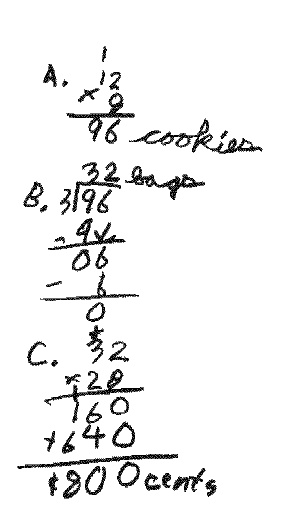 1
A. 12
× 8
96 cookies
32 bags
B. 3)96
- 9↓
06
- 6
0
C. 32
×28
160
+640
$800 cents